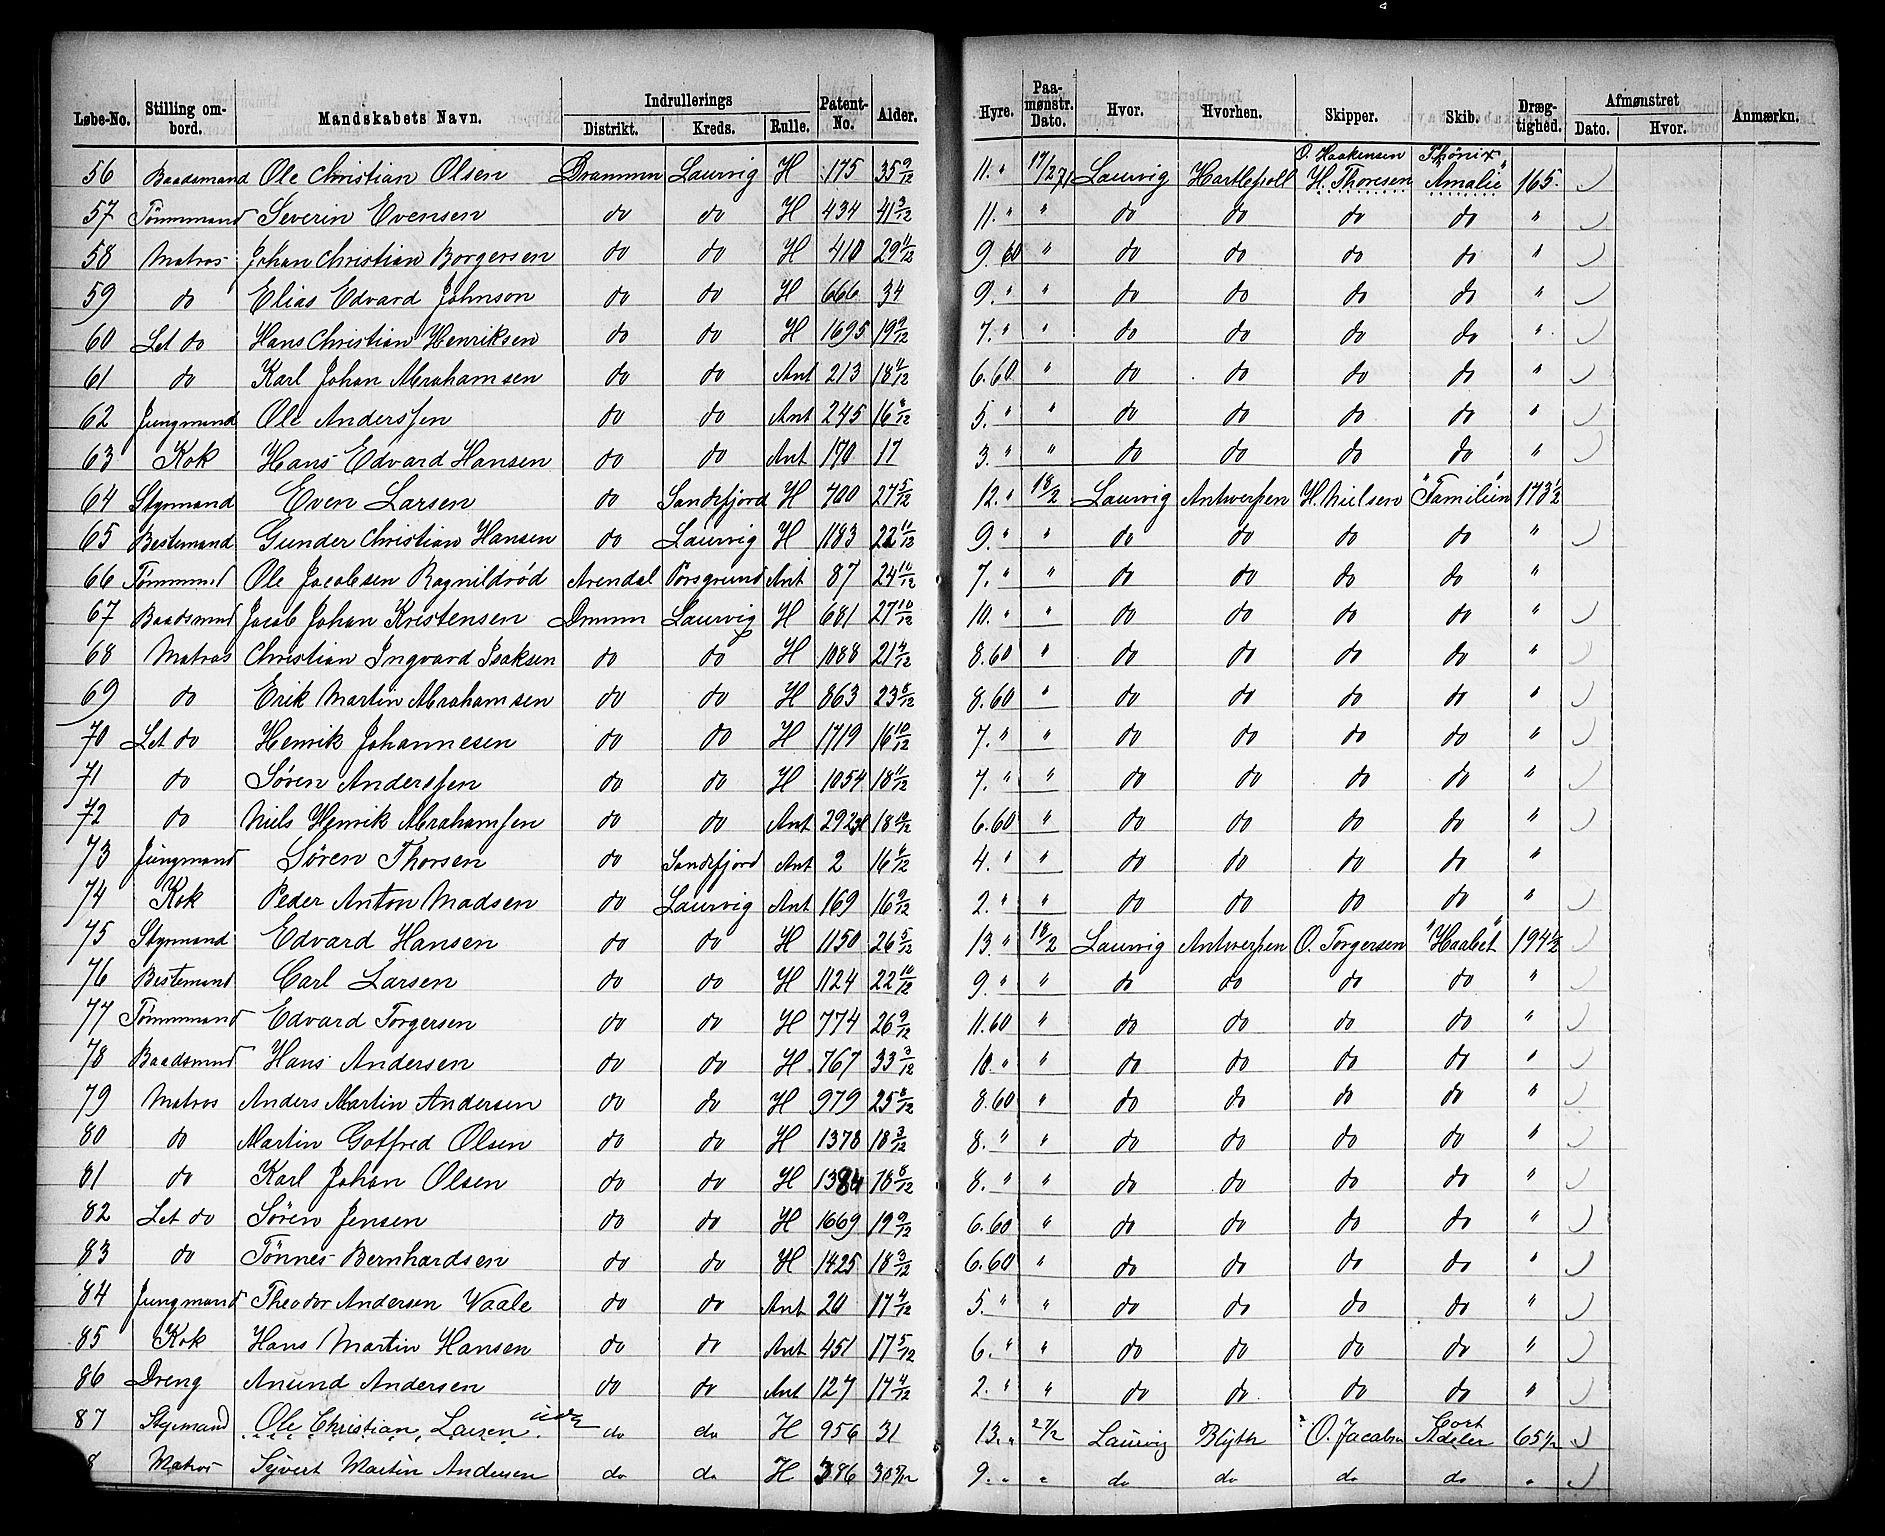 Løbe-No. Stilling ombord. Mandskabets Navn. Indrullerings Distrikt. Kreds. Rulle. Patent-No. Alder. Hyre. Paamønstr. Dato. Hvor. Hvorhen. Skipper. Skib. Drægtighed. Afmønstret Dato. Hvor. Anmærkn.
O. Haakensen Fhönix
56 Baadsmand Ole Christian Olsen Drammen Laurvig H 175 35 9/12 11. " 17/2 71 Laurvig Hartlepoll H. Thoresen Amalie 165.
57 Tømmmand Severin Evensen do do H 434 41 3/12 11. " " do do do do "
58 Matros Johan Christian Borgersen do do H 410 29 11/12 9. 60 " do do do do "
59 do Elias Edvard Johnson do do H 666 34 9. " " do do do do "
60 Let do Hans Christian Henriksen do do H 1695 19 9/12 7. " " do do do do "
61 do Karl Johan Abrahamsen do do Ant 213 18 11/12 6.60 " do do do do "
62 Jungmand Ole Anderssen do do Ant 245 16 8/12 5. " " do do do do "
63 Kok Hans Edvard Hansen do do Ant 170 17 3. " " do do do do "
64 Stymand Even Larsen do Sandefjord H 700 27 5/12 12. " 18/2 Laurvig Antwerpen H. Nielsen "Familien" 173 1/2
65 Bestemand Gunder Christian Hansen do Laurvig H 1183 22 11/12 9. " " do do do do "
66 Tømmmd Ole Jacobsen Ragnildrød Arendal Porsgrund Ant 87 24 10/12 7. " " do do do do "
67 Baadsmnd Jacob Johan Kristensen Drmmn Laurvig H 681 27 10/12 10. " " do do do do "
68 Matros Christian Ingvard Isaksen do do H 1088 21 4/12 8.60 " do do do do "
69 do Erik Martin Abrahamsen do do H 863 23 8/12 8.60 " do do do do "
70 Let do Henrik Johannesen do do H 1719 16 10/12 7. " " do do do do "
71 do Søren Anderssen do do H 1054 18 11/12 7. " " do do do do "
72 do Niels Henrik Abrahamsen do do Ant 292 18 10/12 6.60 " do do do do "
73 Jungmand Søren Thorsen do Sandefjord Ant 2 16 6/12 4. " " do do do do "
74 Kok Peder Anton Madsen do Laurvig Ant 169 16 9/12 2. " " do do do do "
75 Stymand Edvard Hansen do do H 1150 26 5/12 13 " 18/2 Laurvig Antwerpen O. Torgersen "Haabet" 194 1/2
76 Bestemand Carl Larsen do do H 1124 22 10/12 9. " " do do do do "
77 Tømmmand Edvard Torgersen do do H 774 26 9/12 11.60 " do do do do "
78 Baadsmnd Hans Andersen do do H 767 33 3/12 10. " " do do do do "
79 Matros Anders Martin Andersen do do H 979 25 8/12 8.60 " do do do do "
80 do Martin Gotfred Olsen do do H 1378 18 3/12 8. " " do do do do "
81 do Karl Johan Olsen do do H 1384 18 8/12 8. " " do do do do "
82 Let do Søren Jensen do do H 1669 19 9/12 6.60 " do do do do "
83 do Tønnes Bernhardsen do do H 1425 18 3/12 6.60 " do do do do "
84 Jungmand Theodor Andersen Vaale do do Ant 20 17 4/12 5. " " do do do do "
85 Kok Hans Martin Hansen do do Ant 451 17 5/12 6. " " do do do do "
86 Dreng Anund Andersen do do Ant 127 17 4/12 2. " " do do do do "
87 Styrmand Ole Christian Larsen do do H 956 31 13. " 27/2 Laurvig Blyth O. Jacobsen Cort Adeler 65 1/2
8 Matros Syvert Martin Andersen do do H 386 30 9. " " do do do do "